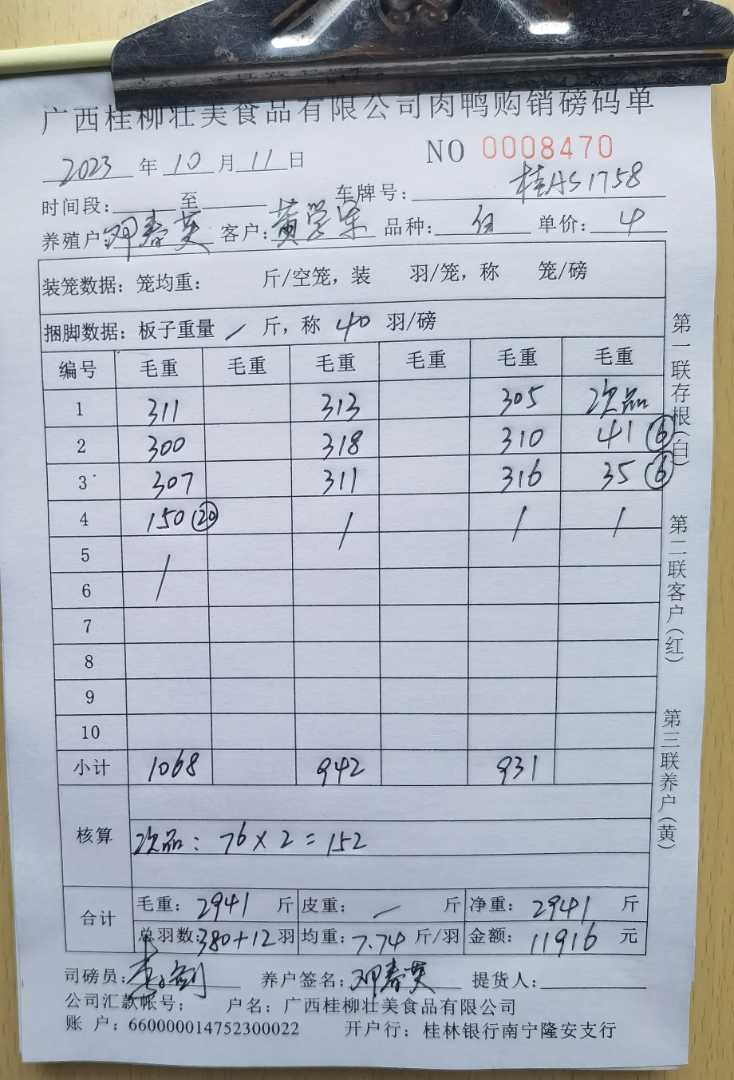 广西桂柳壮美食品有限公司肉鸭购销磅码单
2023 年 10 月 11 日 NO 0008470
时间段: 至 车牌号: 桂AS1758
养殖户: 邓春英 客户: 黄学军 品种: 白 单价: 4
装笼数据: 笼均重: 斤/空笼, 装 羽/笼, 称 笼/磅
捆脚数据: 板子重量 / 斤, 称 40 羽/磅
编号 毛重 毛重 毛重 毛重 毛重
1 311 313 305 次品
2 300 318 310 41 ⑥
3 307 311 316 35 ⑥
4 150 ⑳ / / /
5 /
6
7
8
9
10
小计 1068 942 931
核算 次品: 76×2=152
合计 毛重: 2941 斤 皮重: / 斤 净重: 2941 斤
总羽数: 380+12 羽 均重: 7.74 斤/羽 金额: 11916 元
司磅员: 养户签名: 邓春英 提货人:
公司汇款帐号: 户名: 广西桂柳壮美食品有限公司
账 户: 660000014752300022 开户行: 桂林银行南宁隆安支行
第一联存根(白)
第二联客户(红)
第三联养户(黄)